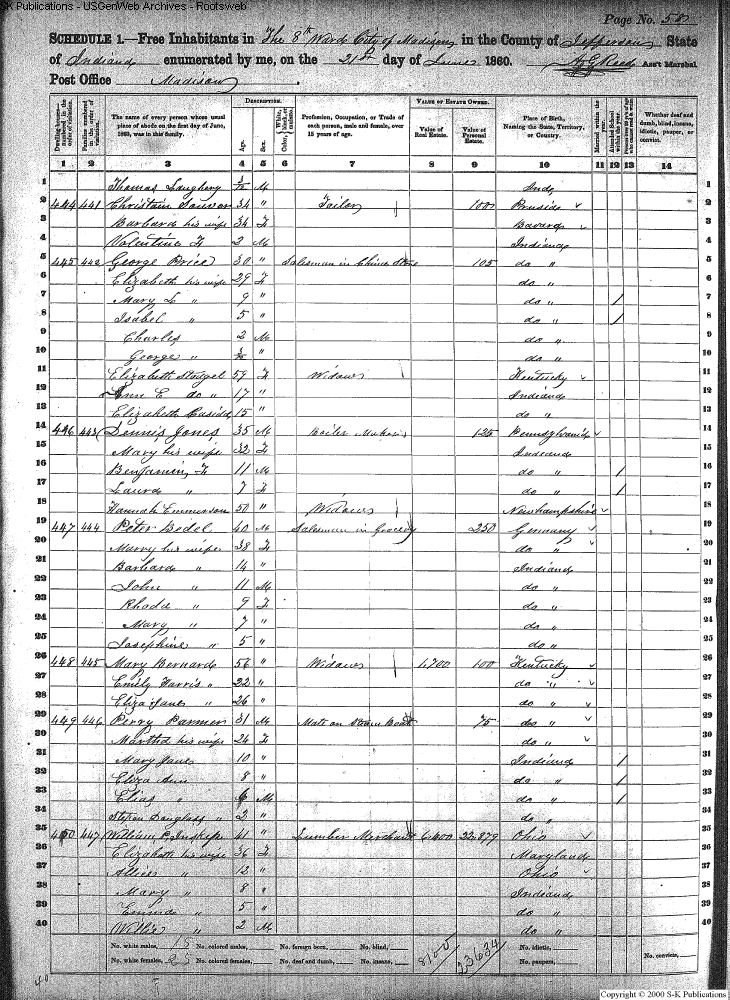 S-K Publications - USGenWeb Archives - Rootsweb
Page No. 58
SCHEDULE 1.—Free Inhabitants in The 8th Ward City of Madison in the County of Jefferson State
of Indiana enumerated by me, on the 21st day of June 1860. Ass't Marshal
Post Office Madison
DESCRIPTION. VALUE OF ESTATE OWNED.
Dwelling-houses—numbered in the order of visitation.
Families numbered in the order of visitation.
The name of every person whose usual place of abode on the first day of June, 1860, was in this family.
Age.
Sex.
Color, White, black, or mulatto.
Profession, Occupation, or Trade of each person, male and female, over 15 years of age.
Value of Real Estate.
Value of Personal Estate.
Place of Birth, Naming the State, Territory, or Country.
Married within the year.
Attended School within the year.
Whether deaf and dumb, blind, insane, idiotic, pauper, or convict.
1 2 3 4 5 6 7 8 9 10 11 12 13 14
1 Thomas M Ind, 1
2 444 441 Christain 34 " Tailor 100 Prussia 2
3 Barbara his wife 34 F Bavaria 3
4 Valentine F 2 M Indiana 4
5 445 442 George Price 30 " Salesman in China Store 105 do " 5
6 Elizabeth his wife 29 F do " 6
7 Mary L " 9 " do " / 7
8 Isabel " 5 " do " / 8
9 Charles 2 M do " 9
10 George " " do " 10
11 Elizabeth 59 F Widow Kentucky 11
12 Ann E do " 17 " Indiana 12
13 Elizabeth 15 " do " 13
14 446 443 Dennis Jones 35 M Boiler Maker 125 Pennsylvania 14
15 Mary his wife 32 F Indiana 15
16 Benjamin F 11 M do " / 16
17 Laura " 7 F do " / 17
18 Hannah Emmerson 50 " Widow Newhampshire 18
19 447 444 Peter Bedel 40 M Salesman in Grocery 250 Germany 19
20 Marry his wife 38 F do " 20
21 Barbara " 14 " Indiana 21
22 John " 11 M do " 22
23 Rhoda " 9 F do " 23
24 Mary " 7 " do " 24
25 Josephine " 5 " do " 25
26 448 445 Mary Bernard 56 " Widow 1,700 100 Kentucky 26
27 Emily Harris " 22 " do " 27
28 Eliza Jane " 26 " do " 28
29 449 446 Perry Parmer 31 M Mate on Steam Boat 75 do " 29
30 Martha his wife 24 F do " 30
31 Mary Jane 10 " Indiana / 31
32 Eliza Ann 8 " do " / 32
33 Elias " 6 M do " / 33
34 Stephen Douglass " 2 " do " 34
35 450 447 William C Inskeep 41 " Lumber Merchant 6,400 22,879 Ohio 35
36 Elizabeth his wife 36 F Maryland 36
37 " 12 " Ohio 37
38 Mary " 8 " Indiana 38
39 " 5 " do " 39
40 Willie " 2 M do " 40
No. white males, 15 No. colored males, No. foreign born, No. blind, 8100 23634 No. idiotic,
No. white females, 25 No. colored females, No. deaf and dumb, No. insane, No. paupers, No. convicts,
40
Copyright © 2000 S-K Publications